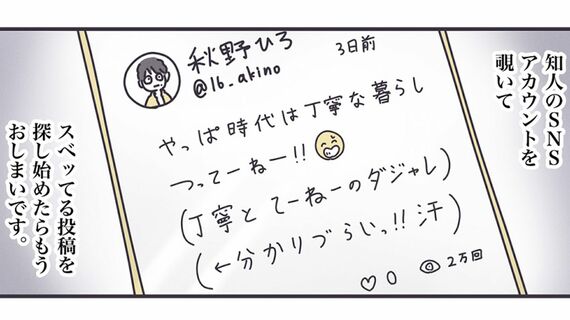 知人のSNS
アカウントを
覗いて
秋野ひろ
3日前
@16_akino
やっぱ時代は丁寧な暮らし
つってーねー!!
(丁寧と てーねーのダジャレ)
(←分かりづらいっ!! 汗)
♡0
2万回
スベッてる投稿を
探し始めたらもう
おしまいです。